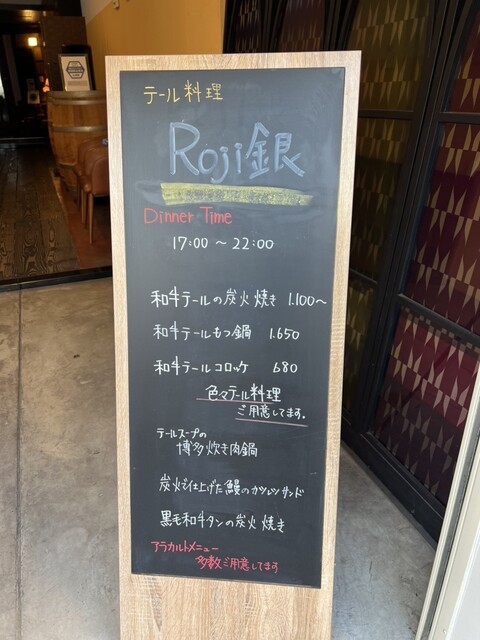 テール料理
Roji銀
Dinner Time
17:00 〜 22:00
和牛テールの炭火焼き 1.100〜
和牛テールもつ鍋 1.650
和牛テールコロッケ 680
色々テール料理
ご用意してます。
テールスープの
博多炊き肉鍋
炭火で仕上げた鰻のカツレツサンド
黒毛和牛タンの炭火焼き
アラカルトメニュー
多数ご用意してます